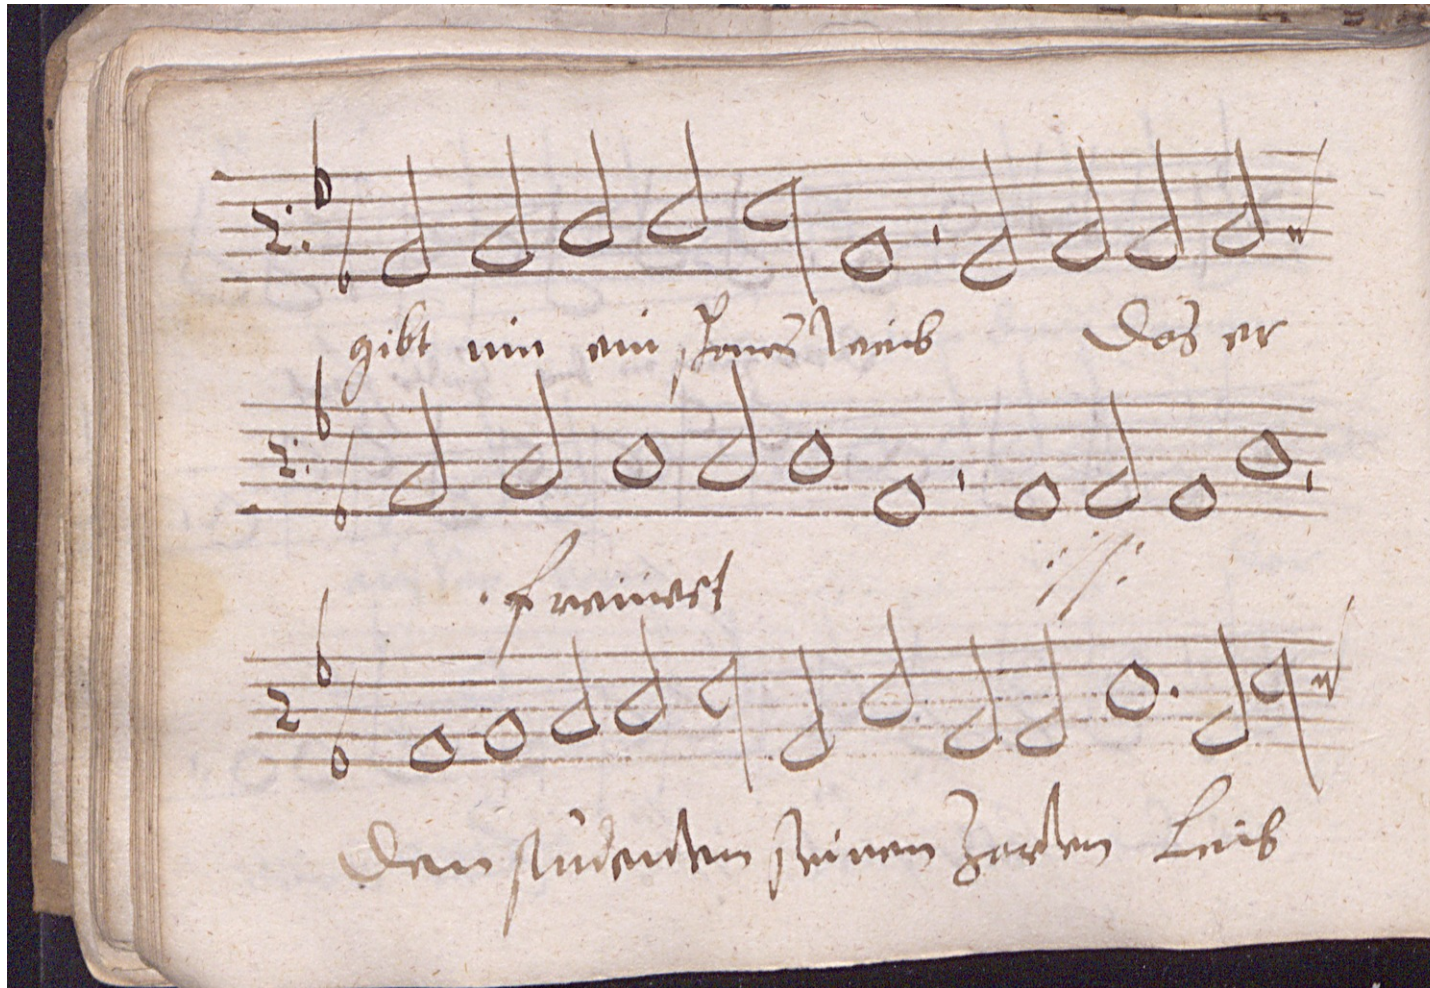 gibt mir ein schones weib Das er
freiwet ://:
Den studenten seinen zarten Leib